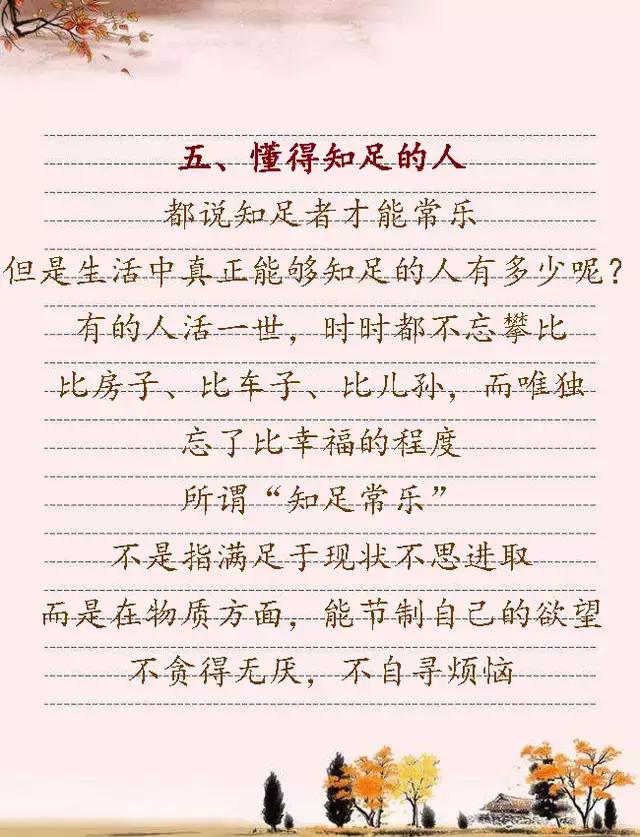 五、懂得知足的人
都说知足者才能常乐
但是生活中真正能够知足的人有多少呢？
有的人活一世，时时都不忘攀比
比房子、比车子、比儿孙，而唯独
忘了比幸福的程度
所谓“知足常乐”
不是指满足于现状不思进取
而是在物质方面，能节制自己的欲望
不贪得无厌，不自寻烦恼